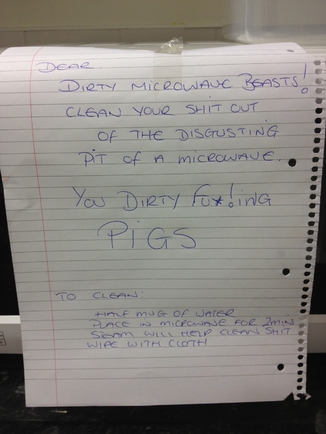 DEAR
DIRTY MICROWAVE BEASTS!
CLEAN YOUR SHIT OUT
OF THE DISGUSTING
PIT OF A MICROWAVE.
YOU DIRTY FUX!ING
PIGS
TO CLEAN:
HALF MUG OF WATER
PLACE IN MICROWAVE FOR 2MIN
STEAM WILL HELP CLEAN SHIT
WIPE WITH CLOTH